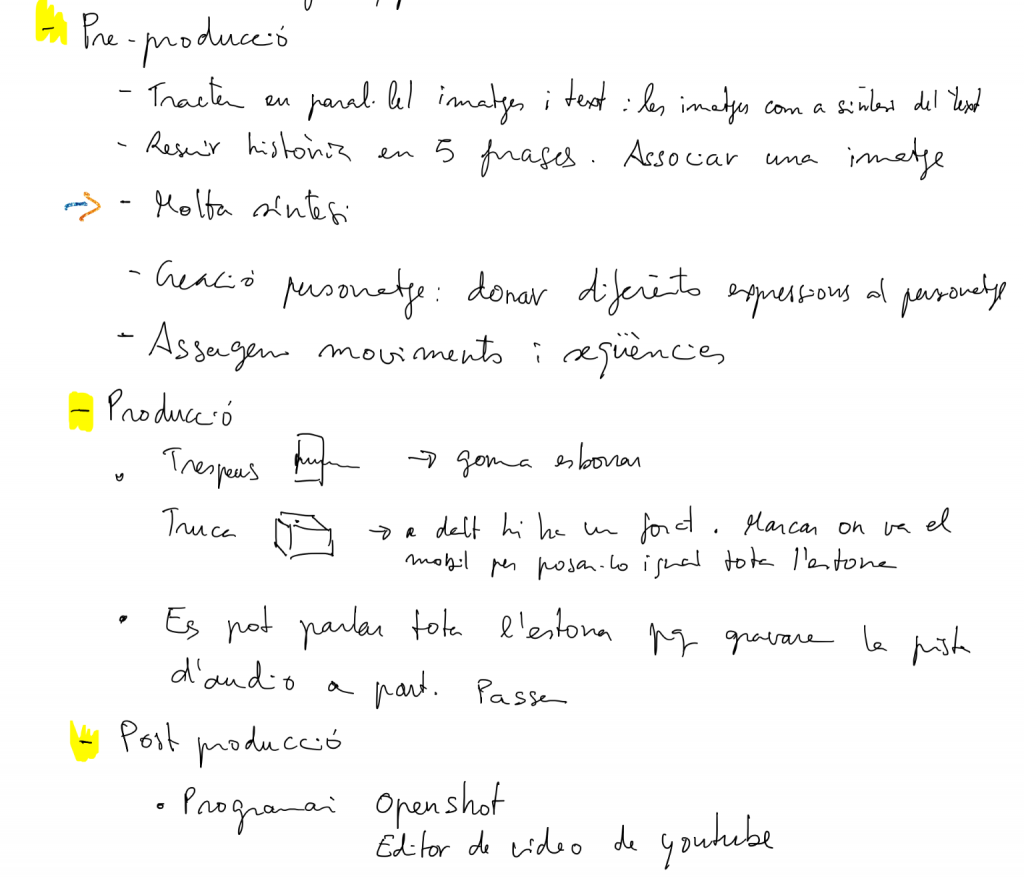 - Pre-producció
- Tracten en paral·lel imatges i text : les imatges com a síntesi del text
- Resumir història en 5 frases. Associar una imatge
→ - Molta síntesi
- Creació personatge: donar diferents expressions al personatge
- Assagem moviments i seqüències
- Producció
• Trespeus → goma esborrar
Truca → a dalt hi ha un forat. Marcar on va el
mobil per posar-lo igual tota l'estona
• Es pot parlar tota l'estona pq gravare la pista
d'audio a part. Passem
- Post producció
• Programari Openshot
Editor de video de youtube